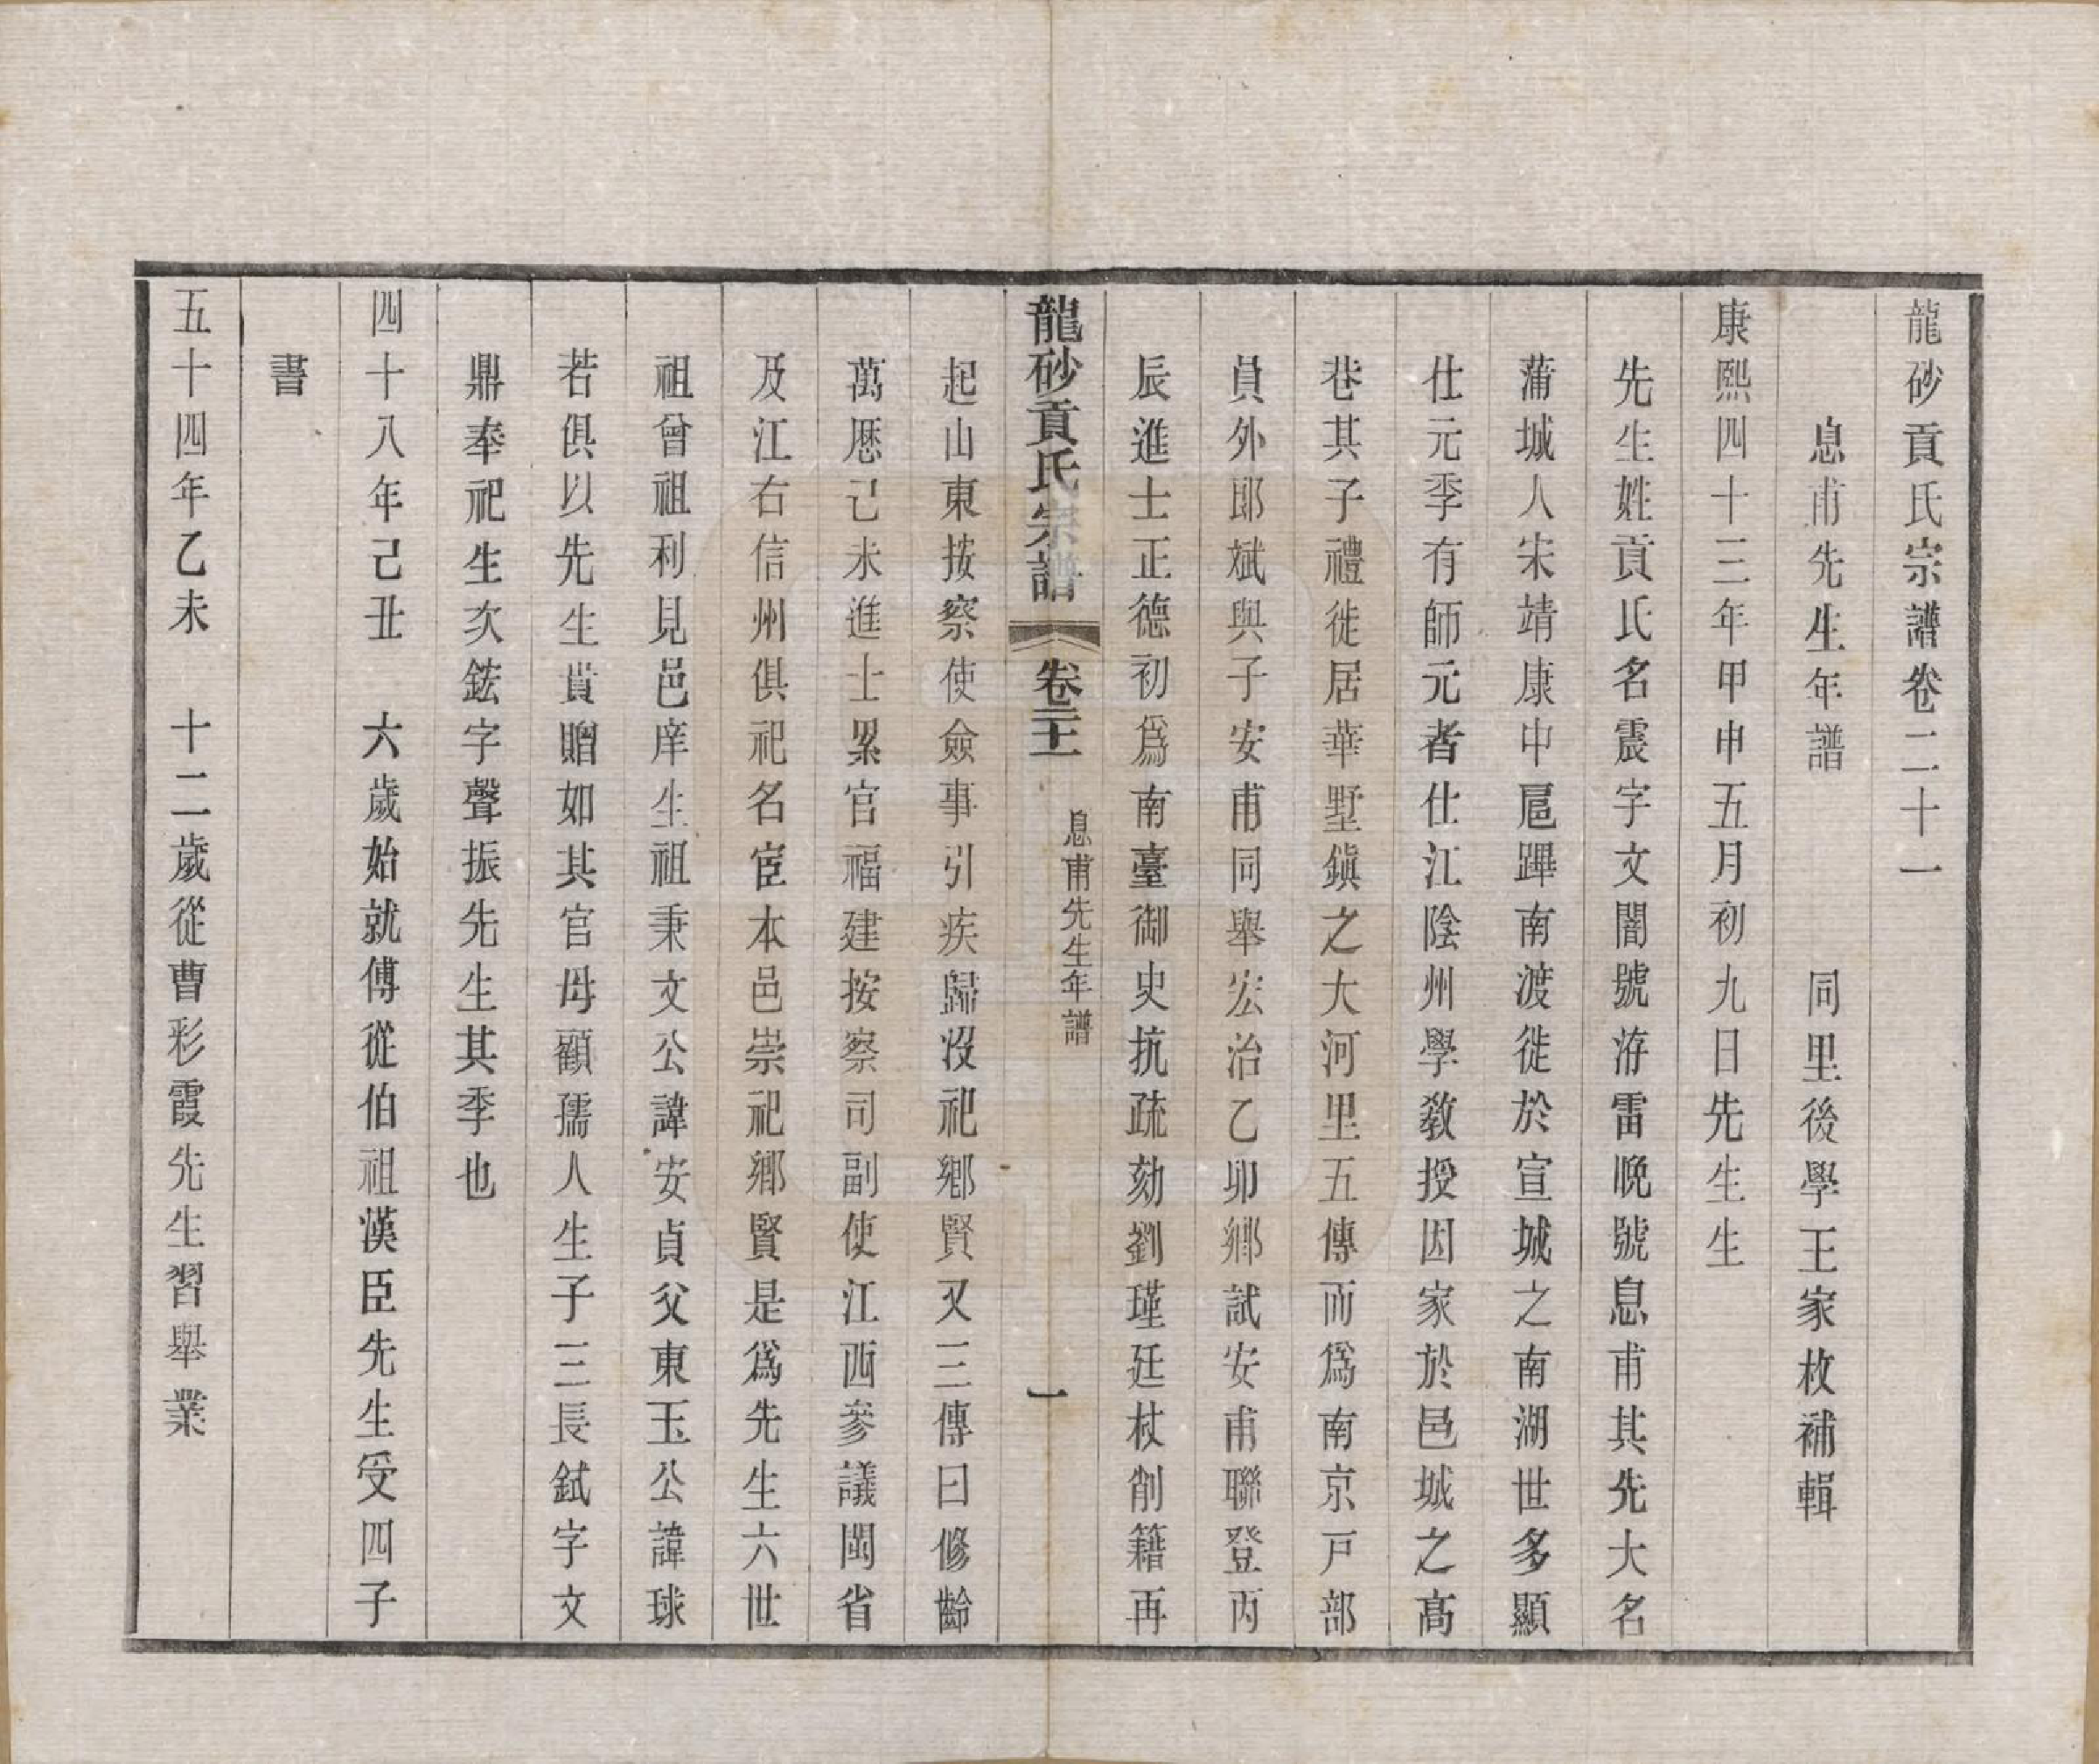 龍砂貢氏宗譜卷二十一
息甫先生年譜　同里後學王家枚補輯
康熙四十三年甲申五月初九日先生生
先生姓貢氏名震字文闇號洊雷晚號息甫其先大名
蒲城人宋靖康中扈蹕南渡徙於宣城之南湖世多顯
仕元季有師元者仕江陰州學教授因家於邑城之高
巷其子禮徙居華墅鎭之大河里五傳而爲南京戸部
員外郎斌與子安甫同舉宏治乙卯鄉試安甫聯登丙
辰進士正德初爲南臺御史抗疏劾劉瑾廷杖削籍再
龍砂貢氏宗譜　卷二十一　息甫先生年譜　一
起山東按察使僉事引疾歸沒祀鄉賢又三傳曰修齡
萬厯己未進士累官福建按察司副使江西參議閩省
及江右信州俱祀名宦本邑崇祀鄉賢是爲先生六世
祖曾祖利見邑庠生祖秉文公諱安貞父東玉公諱球
若俱以先生貴贈如其官母顧孺人生子三長鉽字文
鼎奉祀生次鋐字聲振先生其季也
四十八年己丑　六歲始就傅從伯祖漢臣先生受四子
書
五十四年乙未　十二歲從曹彩霞先生習舉業